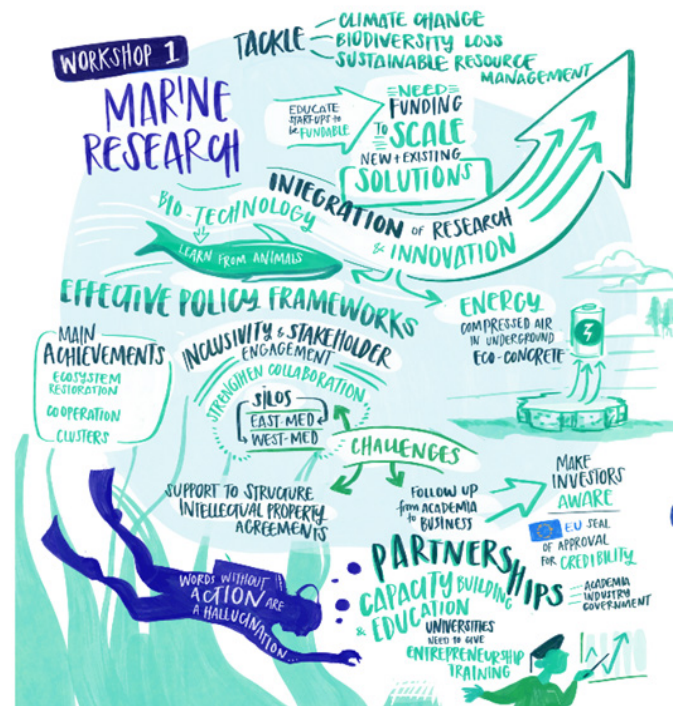 WORKSHOP 1
MARINE
RESEARCH
TACKLE
CLIMATE CHANGE
BIODIVERSITY LOSS
SUSTAINABLE RESOURCE
MANAGEMENT
EDUCATE
START-UPS to
be FUNDABLE
NEED
FUNDING
TO SCALE
NEW + EXISTING
SOLUTIONS
INTEGRATION OF RESEARCH
& INNOVATION
BIO-TECHNOLOGY
LEARN FROM ANIMALS
EFFECTIVE POLICY FRAMEWORKS
ENERGY
COMPRESSED AIR
IN UNDERGROUND
ECO-CONCRETE
MAIN
ACHIEVEMENTS
ECOSYSTEM
RESTORATION
COOPERATION
CLUSTERS
INCLUSIVITY & STAKEHOLDER
ENGAGEMENT
STRENGHEN COLLABORATION
SILOS
EAST-MED
WEST-MED
CHALLENGES
SUPPORT TO STRUCTURE
INTELLECTUAL PROPERTY
AGREEMENTS
FOLLOW UP
from ACADEMIA
to BUSINESS
MAKE
INVESTORS
AWARE
EU SEAL
OF APPROVAL
FOR CREDIBILITY
PARTNERSHIPS
ACADEMIA
INDUSTRY
GOVERNMENT
CAPACITY BUILDING
& EDUCATION
UNIVERSITIES
NEED TO GIVE
ENTREPRENEURSHIP
TRAINING
WORDS WITHOUT
ACTION ARE
A HALLUCINATION...